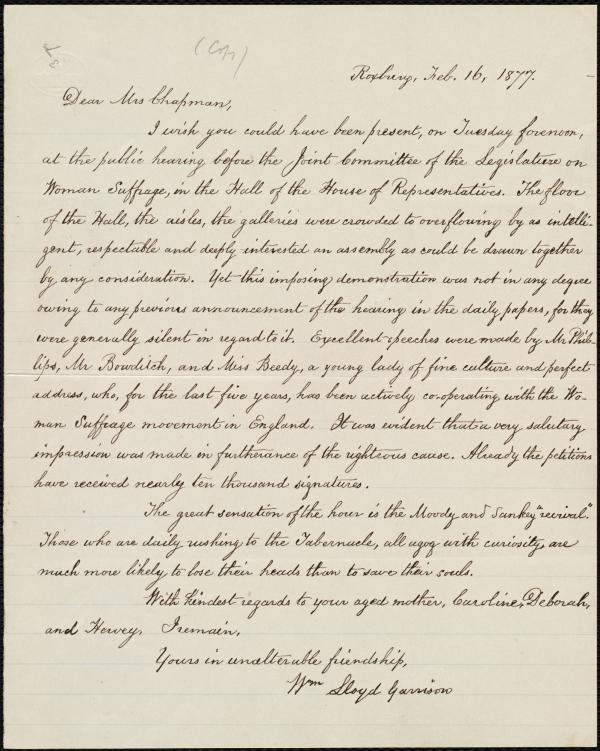 (Copy)
Roxbury, Feb. 16, 1877.
Dear Mrs Chapman,
I wish you could have been present, on Tuesday forenoon,
at the public hearing before the Joint Committee of the Legislature on
Woman Suffrage, in the Hall of the House of Representatives. The floor
of the Hall, the aisles, the galleries were crowded to overflowing by as intelli-
gent, respectable and deeply interested an assembly as could be drawn together
by any consideration. Yet this imposing demonstration was not in any degree
owing to any previous announcement of the hearing in the daily papers, for they
were generally silent in regard to it. Excellent speeches were made by Mr Phil-
lips, Mr Bowditch, and Miss Beedy, a young lady of fine culture and perfect
address, who, for the last five years, has been actively co-operating with the Wo-
man Suffrage movement in England. It was evident that a very salutary
impression was made in furtherance of the righteous cause. Already the petitions
have received nearly ten thousand signatures.
The great sensation of the hour is the Moody and Sankey "revival".
Those who are daily rushing to the Tabernacle, all agog with curiosity, are
much more likely to lose their heads than to save their souls.
With kindest regards to your aged mother, Caroline, Deborah,
and Hervey, I remain,
Yours in unalterable friendship,
Wm Lloyd Garrison